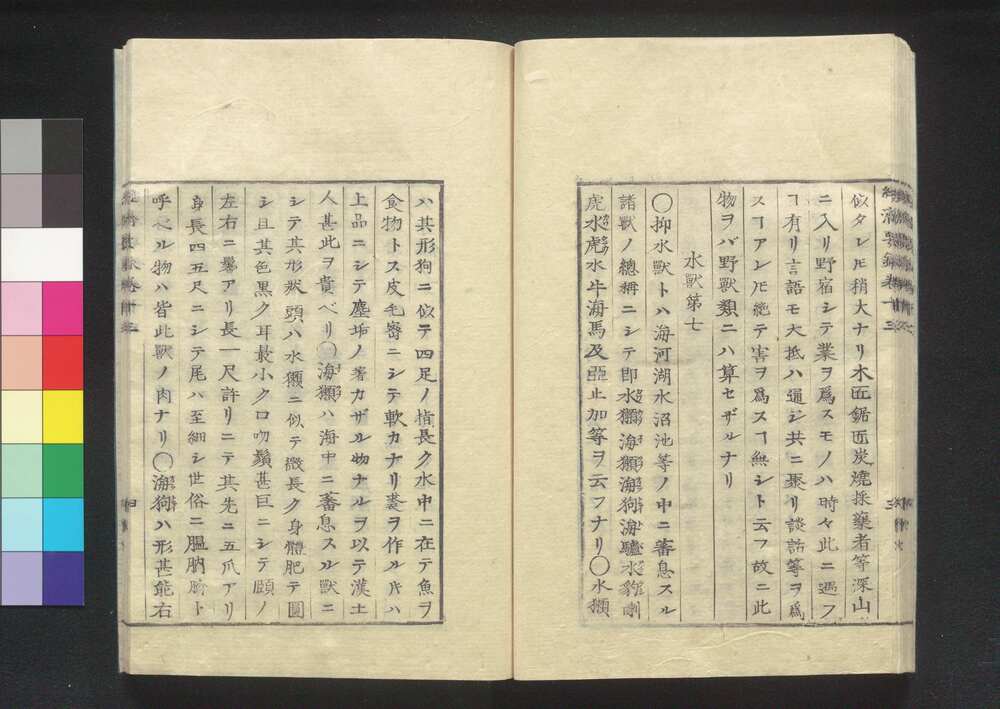 似タレㇳ゙モ稍大ナリ木匠鋸匠炭燒採藥者等深山
ニ入リ野宿シテ業ヲ爲スモノハ時々此ニ遇フ
ヿ有リ言語モ大抵ハ通ジ共ニ聚リ談話等ヲ爲
スヿアレㇳ゙モ絶テ害ヲ爲スヿ無シト云フ故ニ此
物ヲバ野獸類ニハ算セザルナリ
水獸第七
〇抑水獸トハ海河湖水沼池等ノ中ニ蕃息スル
諸獸ノ總稱ニシテ即水獺海獺海狗海驢水豹
虎水虎水牛海馬及亞止加等ヲ云フナリ〇水獺
ハ其形狗ニ似テ四足ノ指長ク水中ニ在テ魚ヲ
食物トス皮毛密ニシテ軟カナリ裘ヲ作ルㇳキハ
上品ニシテ塵垢ノ著カザル物ナルヲ以テ漢土
人甚此ヲ貴ベリ〇海獺ハ海中ニ蕃息スル獸ニ
シテ其形狀頭ハ水獺ニ似テ微長ク身體肥テ圓
シ且其色黒ク耳最小クロ吻鬚甚巨ニシテ頤ノ
左右ニ鬈アリ長一尺許リニテ其先ニ五爪アリ
身長四五尺ニシテ尾ハ至細シ世俗ニ膃肭臍ト
呼ベル物ハ皆此獸ノ肉ナリ〇海狗ハ形甚能右